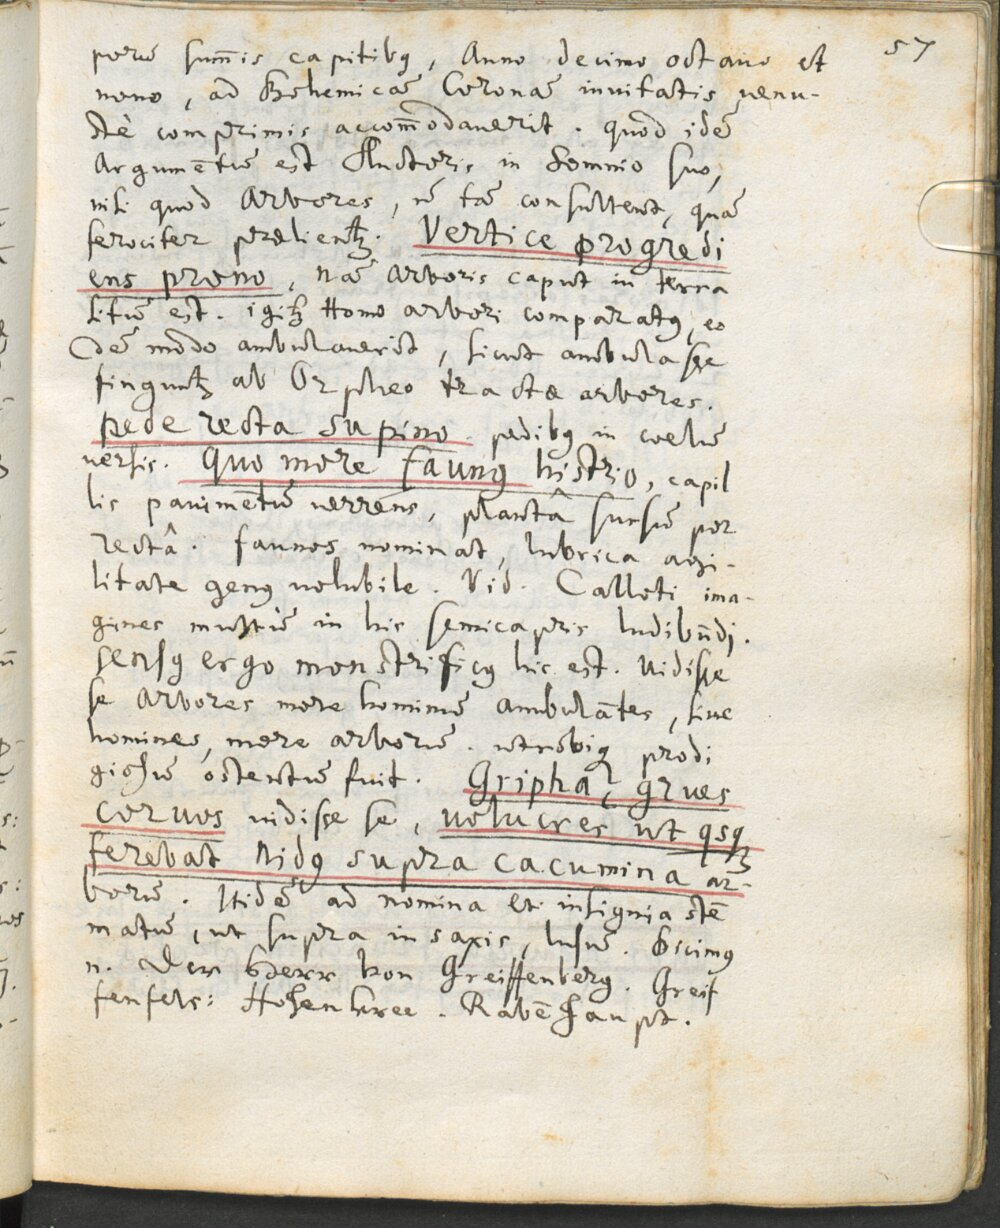 57
perū sum̄is capitibꝯ, Anno decimo octavo et
nono, ad Bohemicā Coronā invitatis, venu-
stè comprimis accom̄odaverit. quod idē
Argumentū est Auctoris in Somnio suo,
nisi quod Arbores, nō tā consultent, quā
ferociter prælientꝛ. Vertice progredi
ens prono, nā Arboris caput in terra
sitū est. igitꝛ Homo arbori comparatꝯ, eo
dē modo ambulaverit, sicut ambulasse
finguntꝛ ab Orpheo tractæ arbores.
pede recta supino. pedibꝯ in coelū
versis. Quo more faunꝯ histrio, capil
lis pavimentū verrens, plantâ sursū por
rectâ. faunos nominat, lubrica agi-
litate genꝯ volubile. Vid. Calloti ima-
gines multū in his semicapris ludibūdi.
Sensꝯ ergo monstrificꝯ hic est. Vidisse
se Arbores more hominū ambulātes, sive
homines, more arborū. utrobiqꝫ prodi
giosū ostentū fuit. Gripha, grues
corvos vidisse se, volucres ut qsqꝫ
ferebat nidꝯ supra cacumina ar-
borū. Itidē ad nomina et insignia stē
matū, ut supra in saxis, lusū. Dicimꝯ
n. Der Herr von Greiffenberg. Greif
fenfels: Hohenkree. Rabēhaupt.